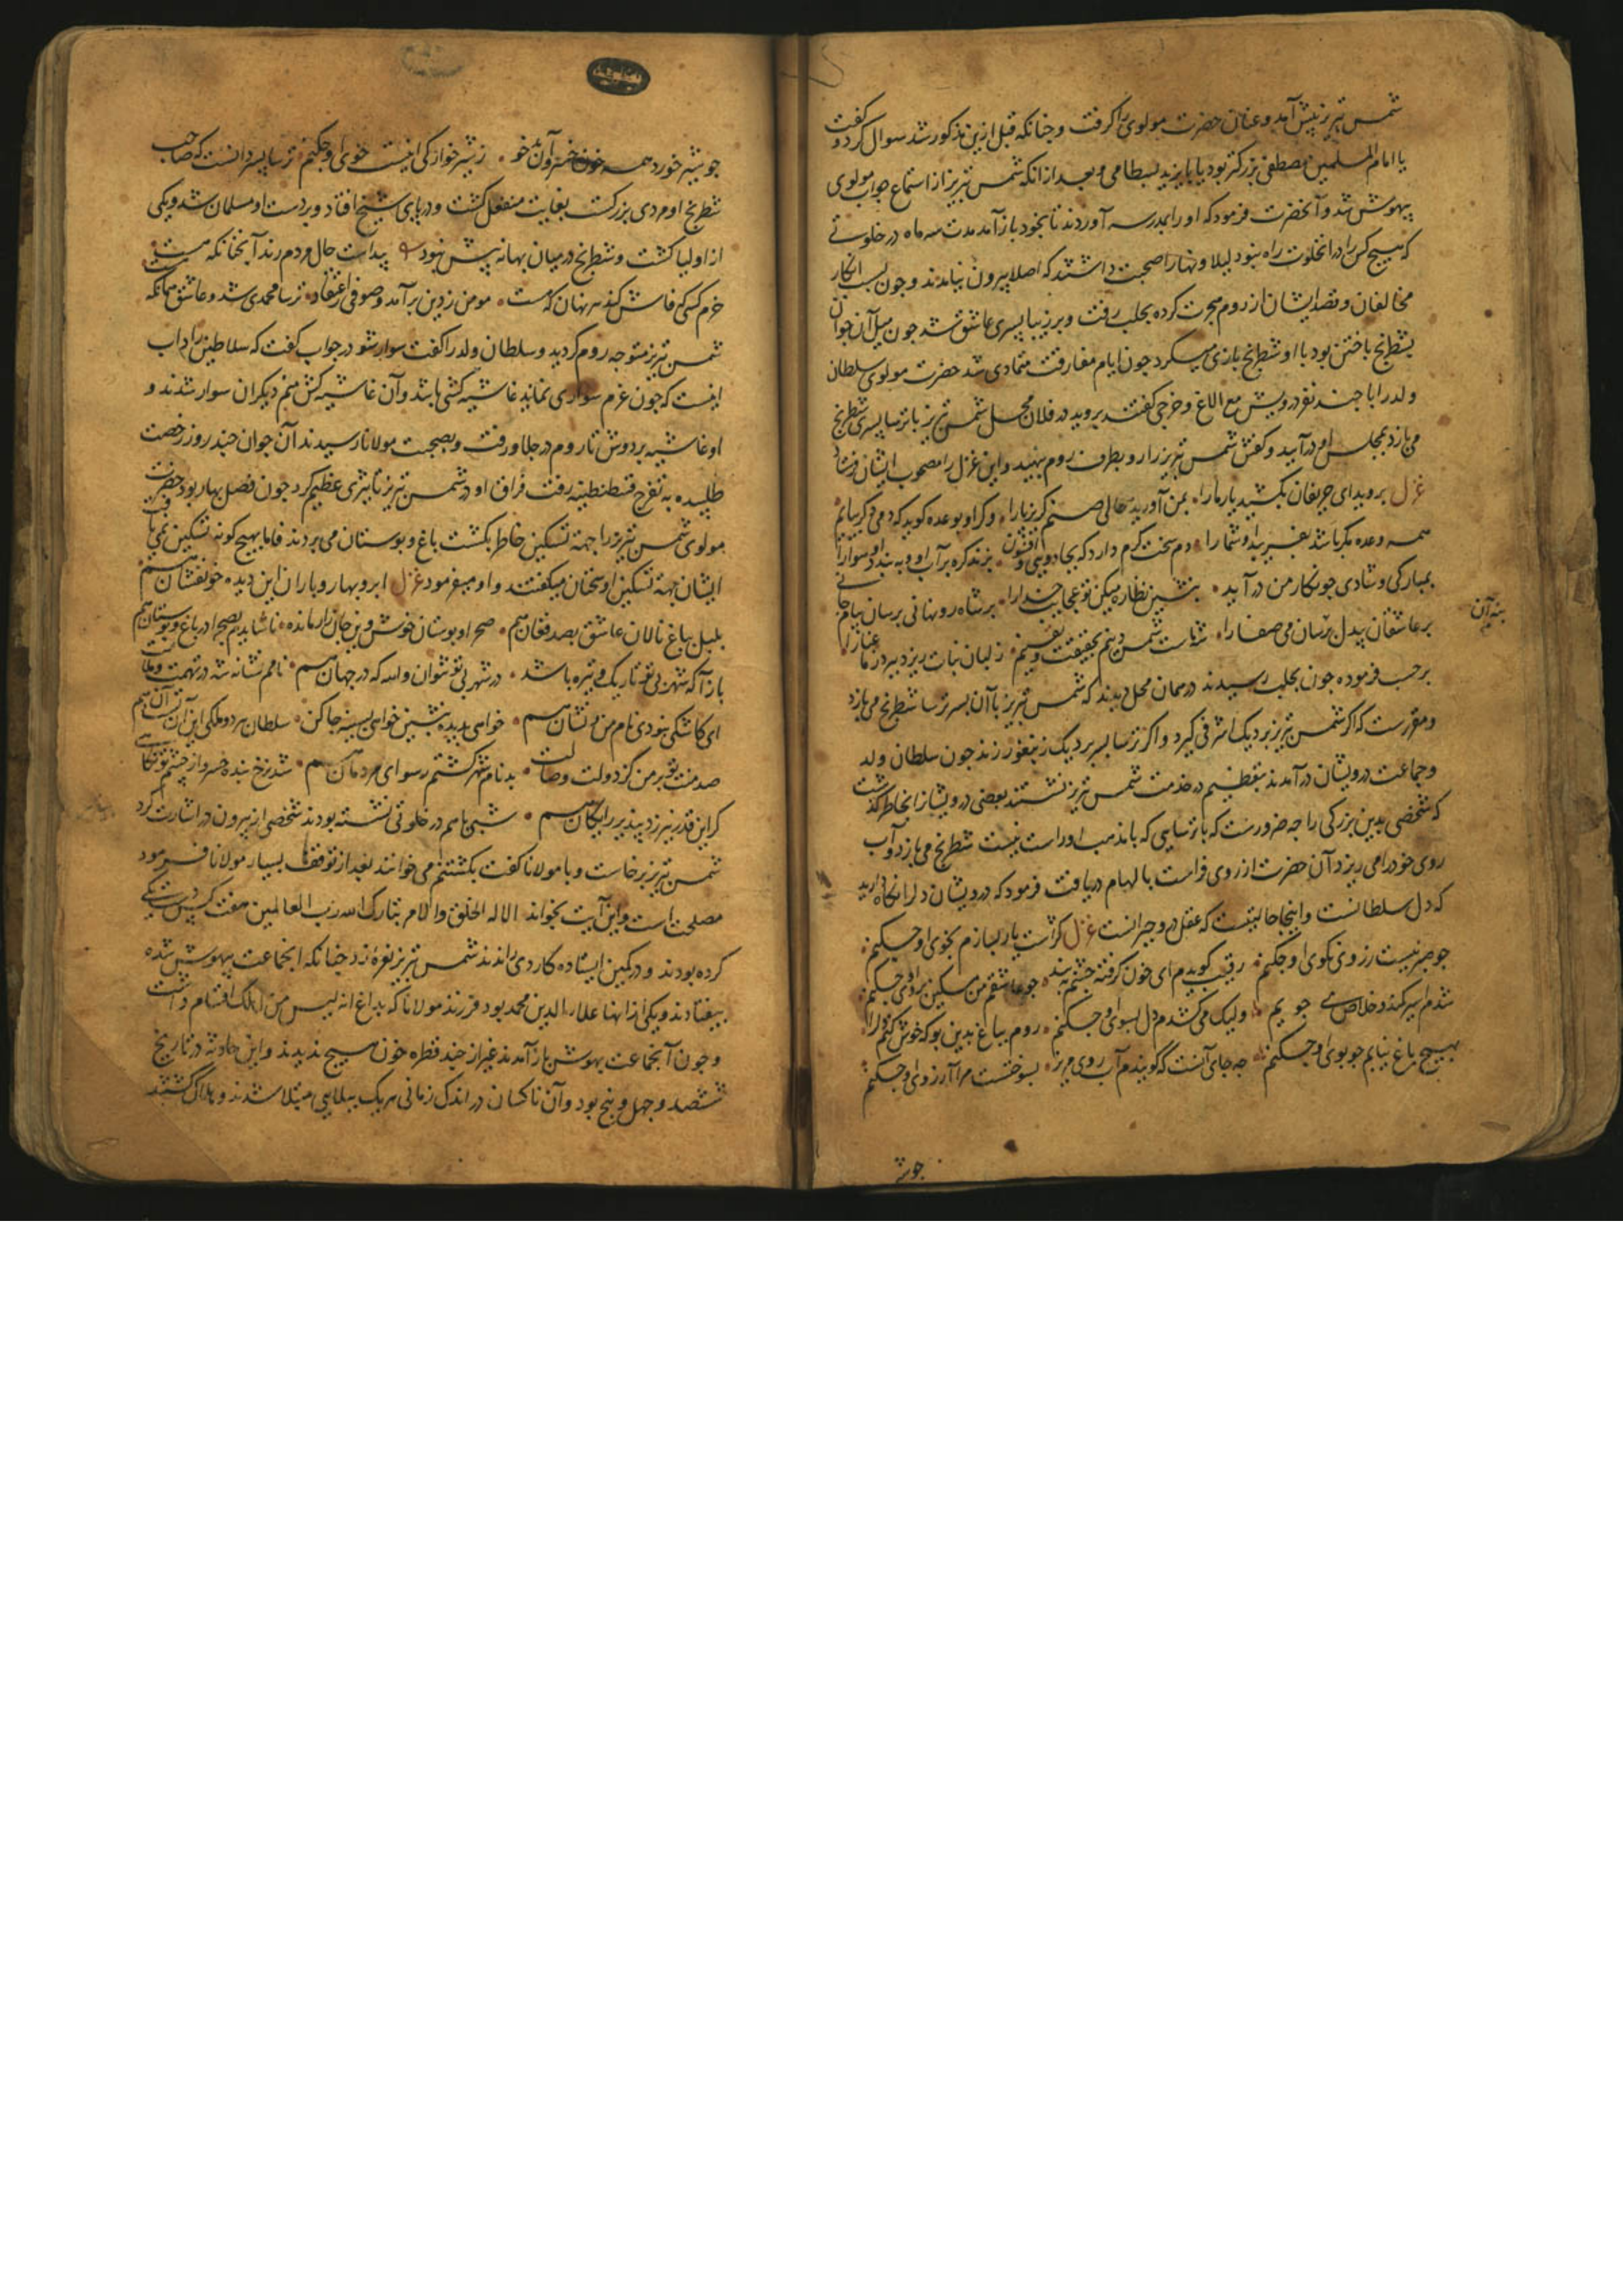 شمس تبریز پیش آمد و عنان حضرت مولوی را گرفت و چنانکه قبل ازین مذکور شد سوال کرد و گفت
یا امام المسلمین مصطفی بزرگتر بود یا بایزید بسطامی و بعد از انکه شمس تبریز از استماع جواب مولوی
بیهوش شد و آنحضرت فرمود که او را بمدرسه آوردند تا بخود باز آمد مدت سه ماه در خلوتی
که هیچ کس را در آنخلوت راه نبود لیلا و نهارا صحبت داشتند که اصلا بیرون نیامدند و چون بسبب انکار
مخالفان و قصد ایشان از روم هجرت کرده بحلب رفت و بر زیبا پسری عاشق شد چون میل آن جوان
بشطرنج باختن بود با او شطرنج بازی میکرد چون ایام مفارقت متمادی شد حضرت مولوی سلطان
ولد را با چند نفر درویش مع الاغ و خرجی گفتند بروید در فلان محل شمس تبریز با ترسا پسری شطرنج
می بازد بمجلس او در آیید و کفش شمس تبریز را رو بطرف روم بنهید و این غزل را مصحوب ایشان فرستاد
غزل بروید ای حریفان بکشید یار ما را بمن آورید حالی صنم گریز پا را وگر او بوعده گوید که دمی دگر بیایم
همه وعده مکر باشد بفریبد او شما را دم سخت گرم دارد که بجادویی و افسون بزند گره بر آب او و ببندد او هوا را
بمبارکی و شادی چو نگار من در آید بنشین نظاره میکن تو عجایب خدا را بر شاه رو نهانی برسان پیام جانی
بر عاشقان بیدل برسان می صفا را
بنه آن
بر حسب فرموده چون بحلب رسیدند در همان محل دیدند که شمس تبریز با آن پسر ترسا شطرنج می بازد
و مقررست که اگر شمس تبریز برد یک اشرفی گیرد و اگر ترسا پسر برد یک زنبغور زند چون سلطان ولد
و جماعت درویشان در آمدند بتعظیم در خدمت شمس تبریز نشستند بعضی درویشانرا بخاطر گذشت
که شخصی بدین بزرگی را چه ضرورست که با ترسایی که با مذهب او راست نیست شطرنج می بازد و آب
روی خود را می ریزد آن حضرت از روی فراست بالهام دریافت فرمود که درویشان دل را نگاه دارید
که دل سلطانست و اینجا حالیست که عقل درو حیرانست غزل گراست یار بسازم بخوی او چکنم
چو صبر نیست ز روی نکوی او چکنم رقیب گویدم ای خون گرفته چشم ببند چو عاشقم من مسکین بروی او چکنم
شدم اسیر کمند و خلاص می جویم ولیک می کشدم دل بسوی او چکنم روم بباغ بدین بو که خوش کنم دل را
بهیچ باغ نیابم چو بوی او چکنم چه جای آنست که گویندم آب روی مریز بسوختست مرا آرزوی او چکنم
چو شیر
چو شیر خورد همه خون خسرو آن بدخو ز شیر خوارگی اینست خوی او چکنم ترسا پسر دانست که صاحب
شطرنج او مردی بزرگست بغایت منفعل گشت و در پای شیخ افتاد و بر دست او مسلمان شد و یکی
از اولیا گشت و شطرنج در میان بهانه بیش نبود پیداست حال مردم رند آنچنانکه هست
خرم کسی که فاش کند هر نهان که هست مومن ز دین بر آمد و صوفی ز اعتقاد ترسا محمدی شد و عاشق همانکه هست
شمس تبریز متوجه روم گردید و سلطان ولد را گفت سوار شو در جواب گفت که سلاطین را داب
اینست که چون عزم سواری نماید غاشیه کشی باشد و آن غاشیه کش منم دیگران سوار شدند و
او غاشیه بر دوش تا روم در جلا ورفت و بصحبت مولانا رسیدند آن جوان چند روز رخصت
طلبیده به تفرج قسطنطنیه رفت فراق او در شمس تبریز تاثیری عظیم کرد چون فصل بهار بود حضرت
مولوی شمس تبریز را جهة تسکین خاطر بگشت باغ و بوستان می بردند فاما بهیچ گونه تسکین نمی یافت
ایشان جهة تسکین او سخنان میگفتند و او میفرمود غزل ابر و بهار و باران این دیده خونفشان هم
بلبل بباغ نالان عاشق بصد فغان هم صحرا و بوستان خوش وین جان زار مانده ناشاید بصحرا در باغ و بوستان هم
باز آ که شهر بی تو تاریک و تیره باشد در شهر بی تو نتوان والله که در جهان هم
ای کاشکی نبودی نام من و نشان هم خواهی بدیده بنشین خواهی بسینه جا کن سلطان هر دو ملکی این آن تست آن هم
صد منت تو بر من کز دولت وصالت بدنام شهر گشتم رسوای مردمان هم
گر این قدر نیرزد بپذیر رایگان هم شبی باهم در خلوتی نشسته بودند شخصی از بیرون در اشارت کرد
شمس تبریز برخاست و با مولانا گفت بکشتنم می خوانند بعد از توقف بسیار مولانا فرمود
مصلحت است و این آیت بخواند الا له الخلق والامر تبارک الله رب العالمین هفت کس
کرده بودند و در کمین ایستاده کاردی راندند شمس تبریز نعره زد چنانکه آنجماعت بیهوش شده
بیفتادند و یکی از انها علاء الدین محمد بود فرزند مولانا که بداغ انه لیس من اهلک اتسام داشت
و چون آنجماعت بهوش باز آمدند غیر از چند قطره خون هیچ ندیدند و این حادثه در تاریخ
ششصد و چهل و پنج بود و آن ناکسان در اندک زمانی هر یک ببلایی مبتلا شدند و هلاک گشتند